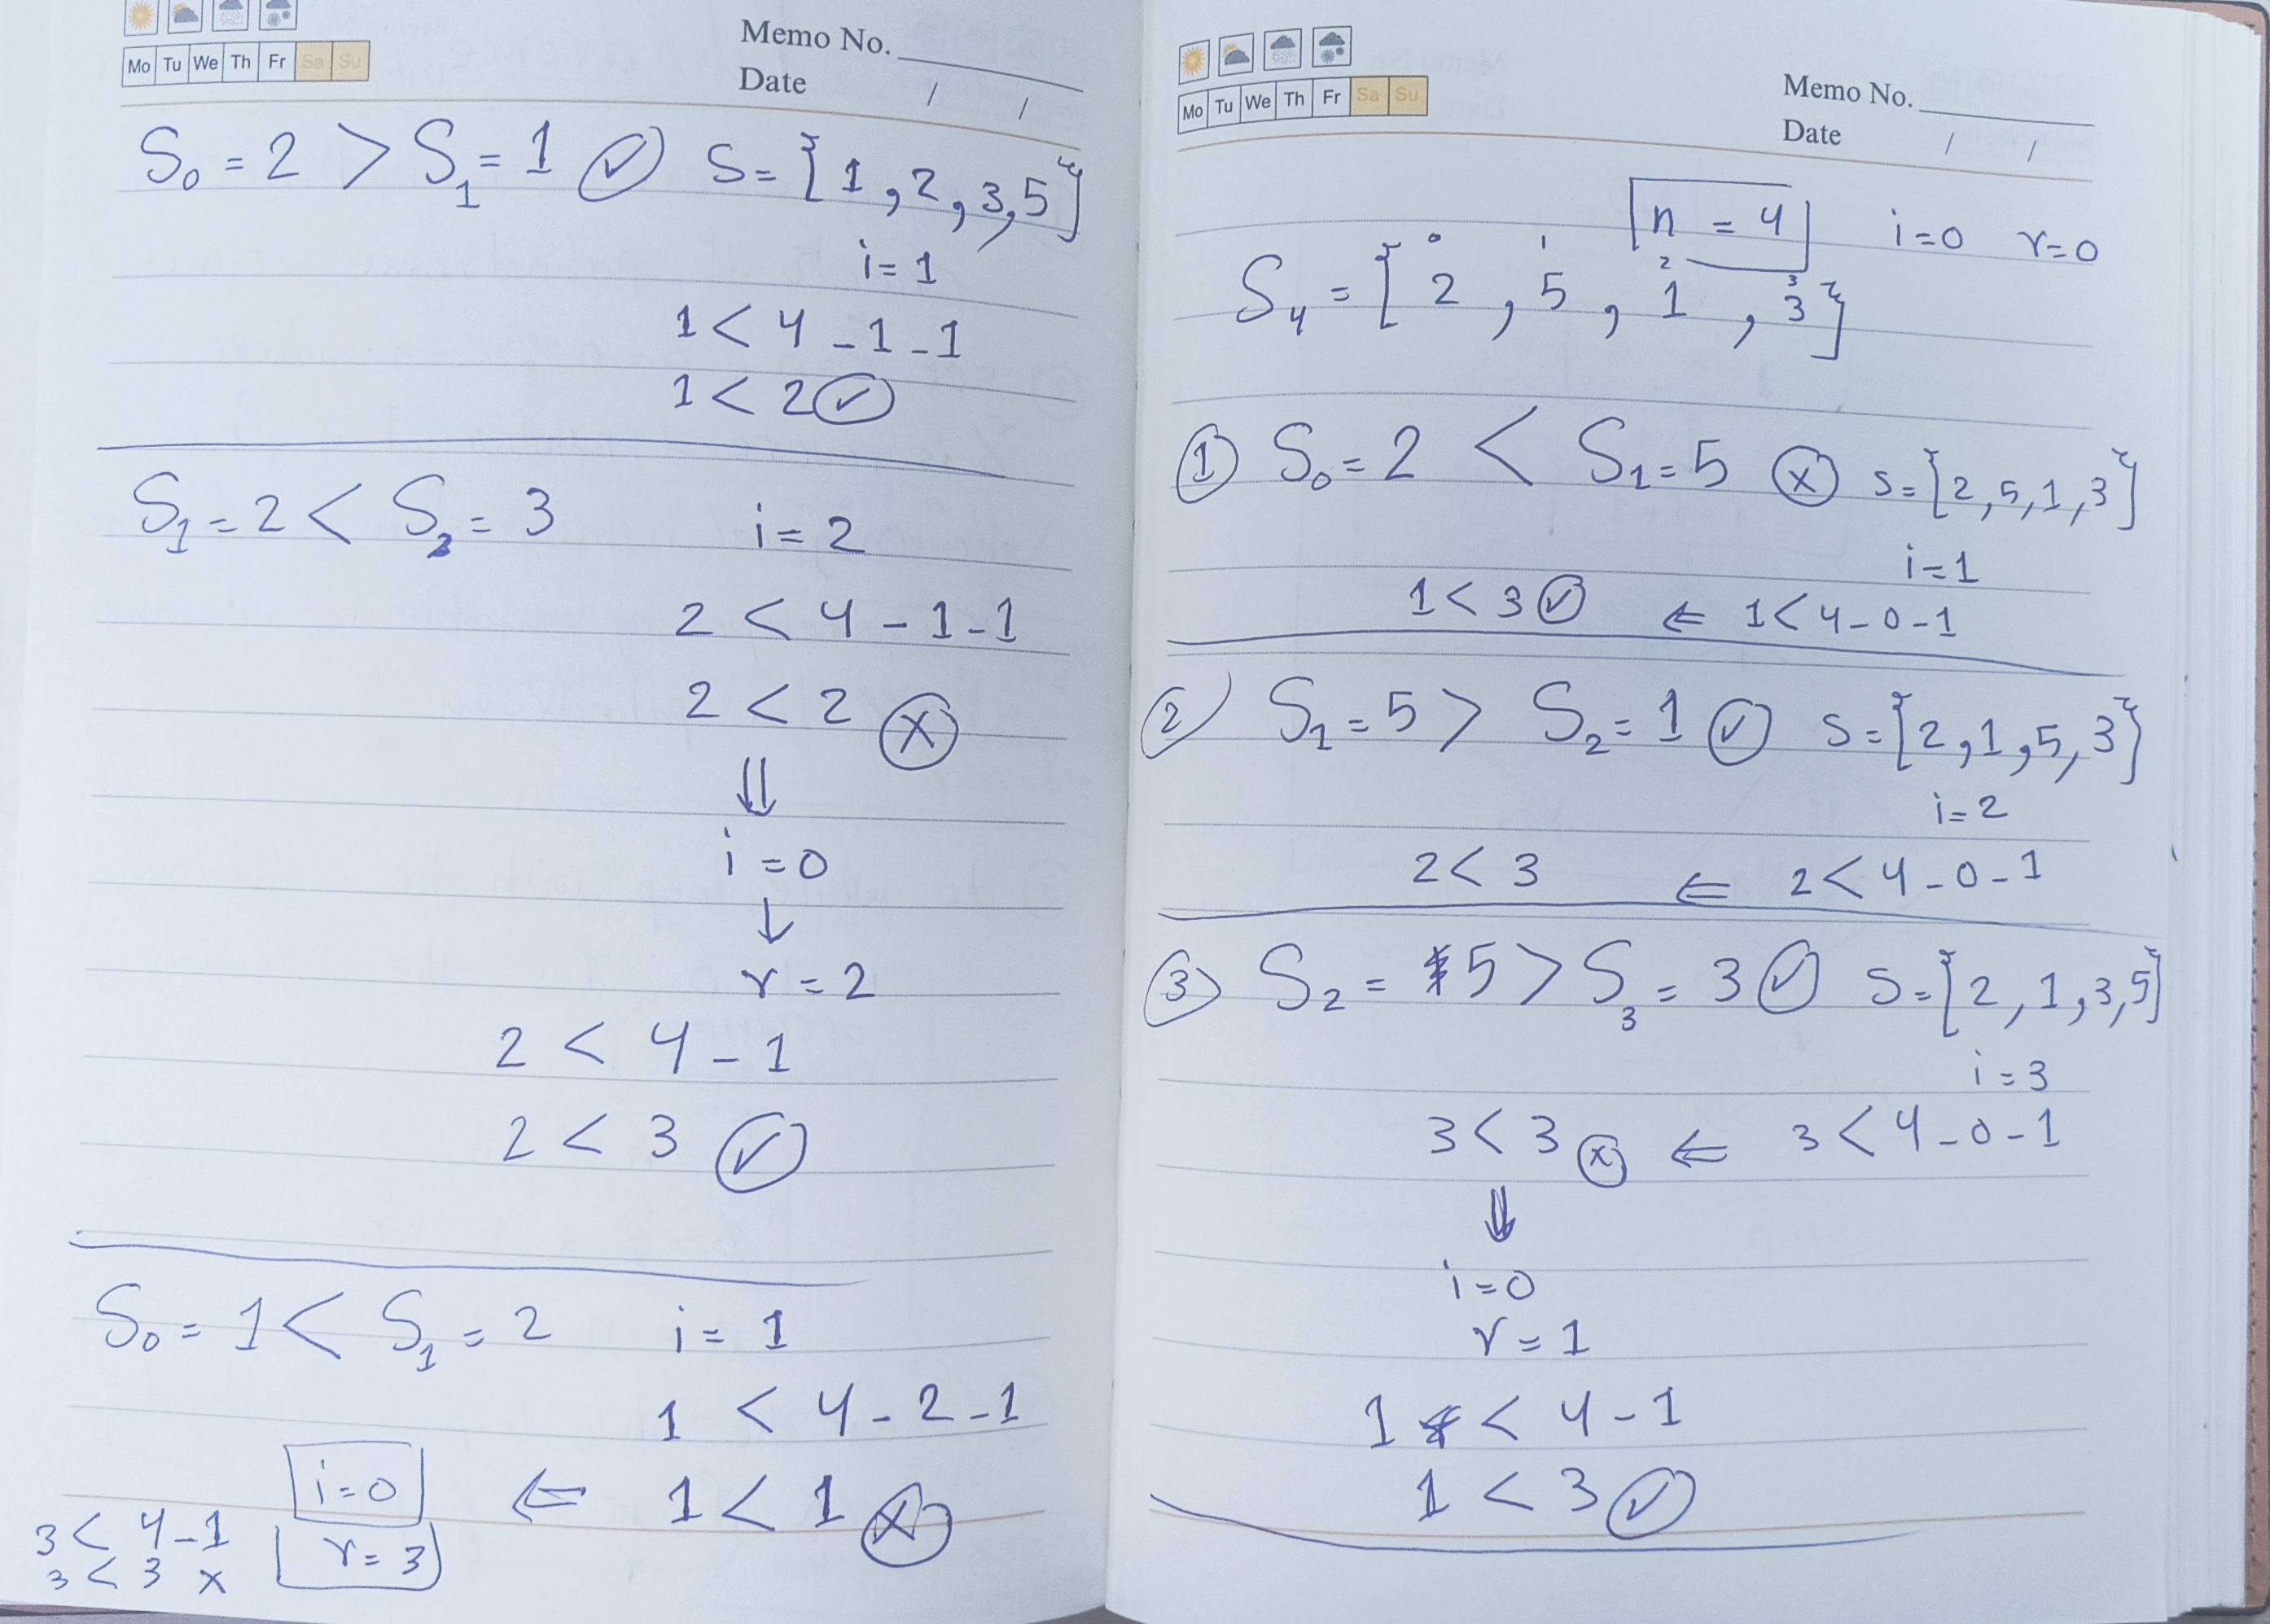 Mo Tu We Th Fr Sa Su
Memo No.
Date / /
S₀ = 2 > S₁ = 1 ✓ S = {1, 2, 3, 5}
i = 1
1 < 4 - 1 - 1
1 < 2 ✓
S₁ = 2 < S₂ = 3 i = 2
2 < 4 - 1 - 1
2 < 2 x
⇓
i = 0
↓
r = 2
2 < 4 - 1
2 < 3 ✓
S₀ = 1 < S₁ = 2 i = 1
1 < 4 - 2 - 1
i = 0 ⇐ 1 < 1 x
3 < 4 - 1 r = 3
3 < 3 x
Mo Tu We Th Fr Sa Su
Memo No.
Date / /
n = 4 i = 0 r = 0
0 1 2 3
S₄ = {2, 5, 1, 3}
① S₀ = 2 < S₁ = 5 x S = {2, 5, 1, 3}
i = 1
1 < 3 ✓ ⇐ 1 < 4 - 0 - 1
② S₁ = 5 > S₂ = 1 ✓ S = {2, 1, 5, 3}
i = 2
2 < 3 ⇐ 2 < 4 - 0 - 1
③ S₂ = 5 > S₃ = 3 ✓ S = {2, 1, 3, 5}
i = 3
3 < 3 x ⇐ 3 < 4 - 0 - 1
⇓
i = 0
r = 1
1 < 4 - 1
1 < 3 ✓